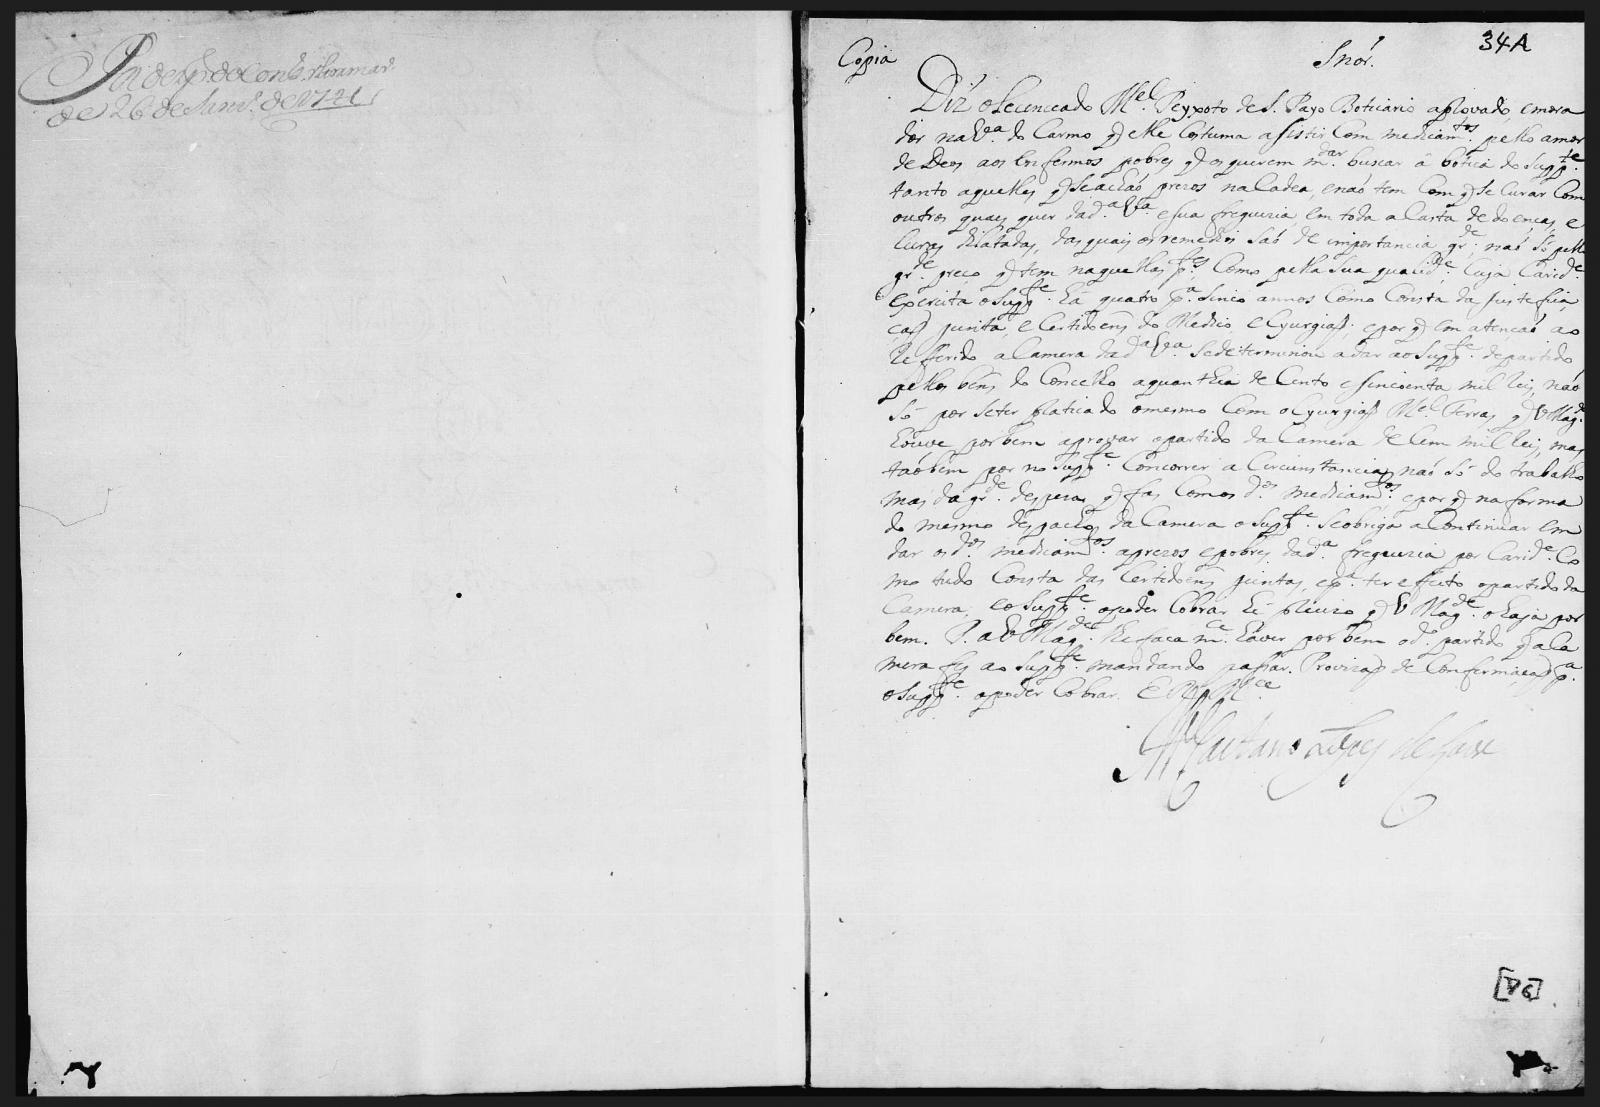 de 26 de Janr.º de 1741
34A
Copia
Snór.
Diz o Lecenceado M.el Peyxoto de S. Payo Boticario aprovado, e mora
dor na V.a do Carmo q̃ elle Costuma asistir Com medicam.tos pello amor
de Deos aos Enfermos pobres q̃ os querem m.dar buscar á botica do Supp.te
tanto aquelles q̃ se achaó prezos na Cadea, e naó tem Com q̃ se Curar Como
outros quaes quer da d.a V.a e sua freguezia, em toda a Casta de doenças, e
Curas dilatadas, das quais os remedios saó de importancia gr.de naó só pello
gr.de preço q̃ tem naquellas p.tes Como pella Sua qualid.e Cuja Carid.e
exercita o Supp.te há quatro p.a Sinco annos Como Consta da justefica
çaõ junta, e Certidoens do Medico, e Cyurgiaõ; e por q̃ em atençaó ao
Refferido a Camera da d.a V.a se determinou a dar ao Supp.te de partido
pellos bens do Concelho a quanthia de Cento e sincoenta mil reis, naó
Só por se ter platicado o mesmo Com o Cyurgiaõ M.el Ferras, q̃ V Mag.de
houve por bem aprovar o partido da Camera de Cem mil reis, mas
taóbem por no Supp.te Concorrer a Circunstancias naó Só do trabalho
mas da gr.de despeza q̃ fas Com os d.os medicam.tos e por q̃ na forma
do mesmo despachos da Camera o Supp.te se obriga a Continuar em
dar os d.os medicam.tos a prezos e pobres da d.a freguezia por Carid.e Co
mo tudo Consta das Certidoens juntas, e p.a ter effeito o partido da
Camera, e o Supp.te o poder Cobrar hé precizo q̃ V Mag.de o haja por
bem. P. a V Mag.de lhe faça m.ce haver por bem o d.o partido q̃ a Ca
mera fes ao Supp.te mandando passar Provizaõ de Confermaçaõ p.a
o Supp.te o poder Cobrar. E R M.ce
M.el Caetano Lopes de Lavre